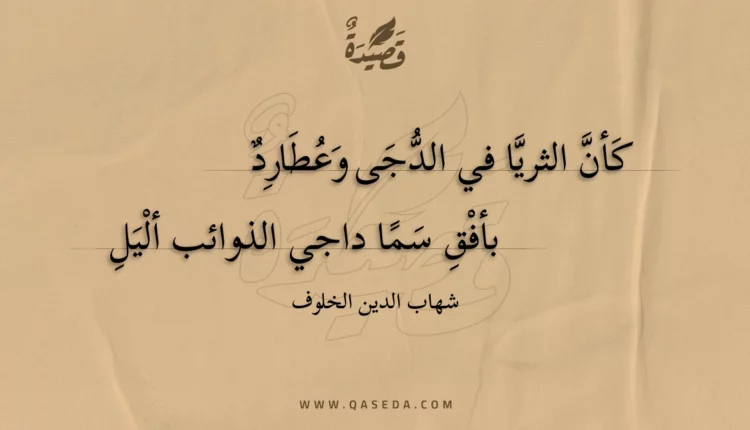 قَصِيْدَةٌ
كَأنَّ الثريَّا في الدُّجَى وَعُطَارِدٌ
بأفْقِ سَمًا داجي الذوائب ألْيَلِ
شهاب الدين الخلوف
WWW.QASEDA.COM